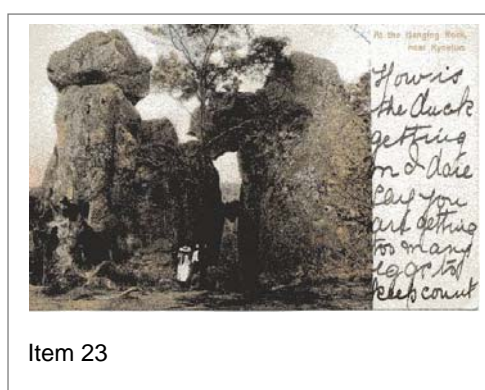 At the Hanging Rock,
near Kyneton.
How is
the duck
getting
on I dare
say you
are getting
too many
eggs to
keep count
Item 23